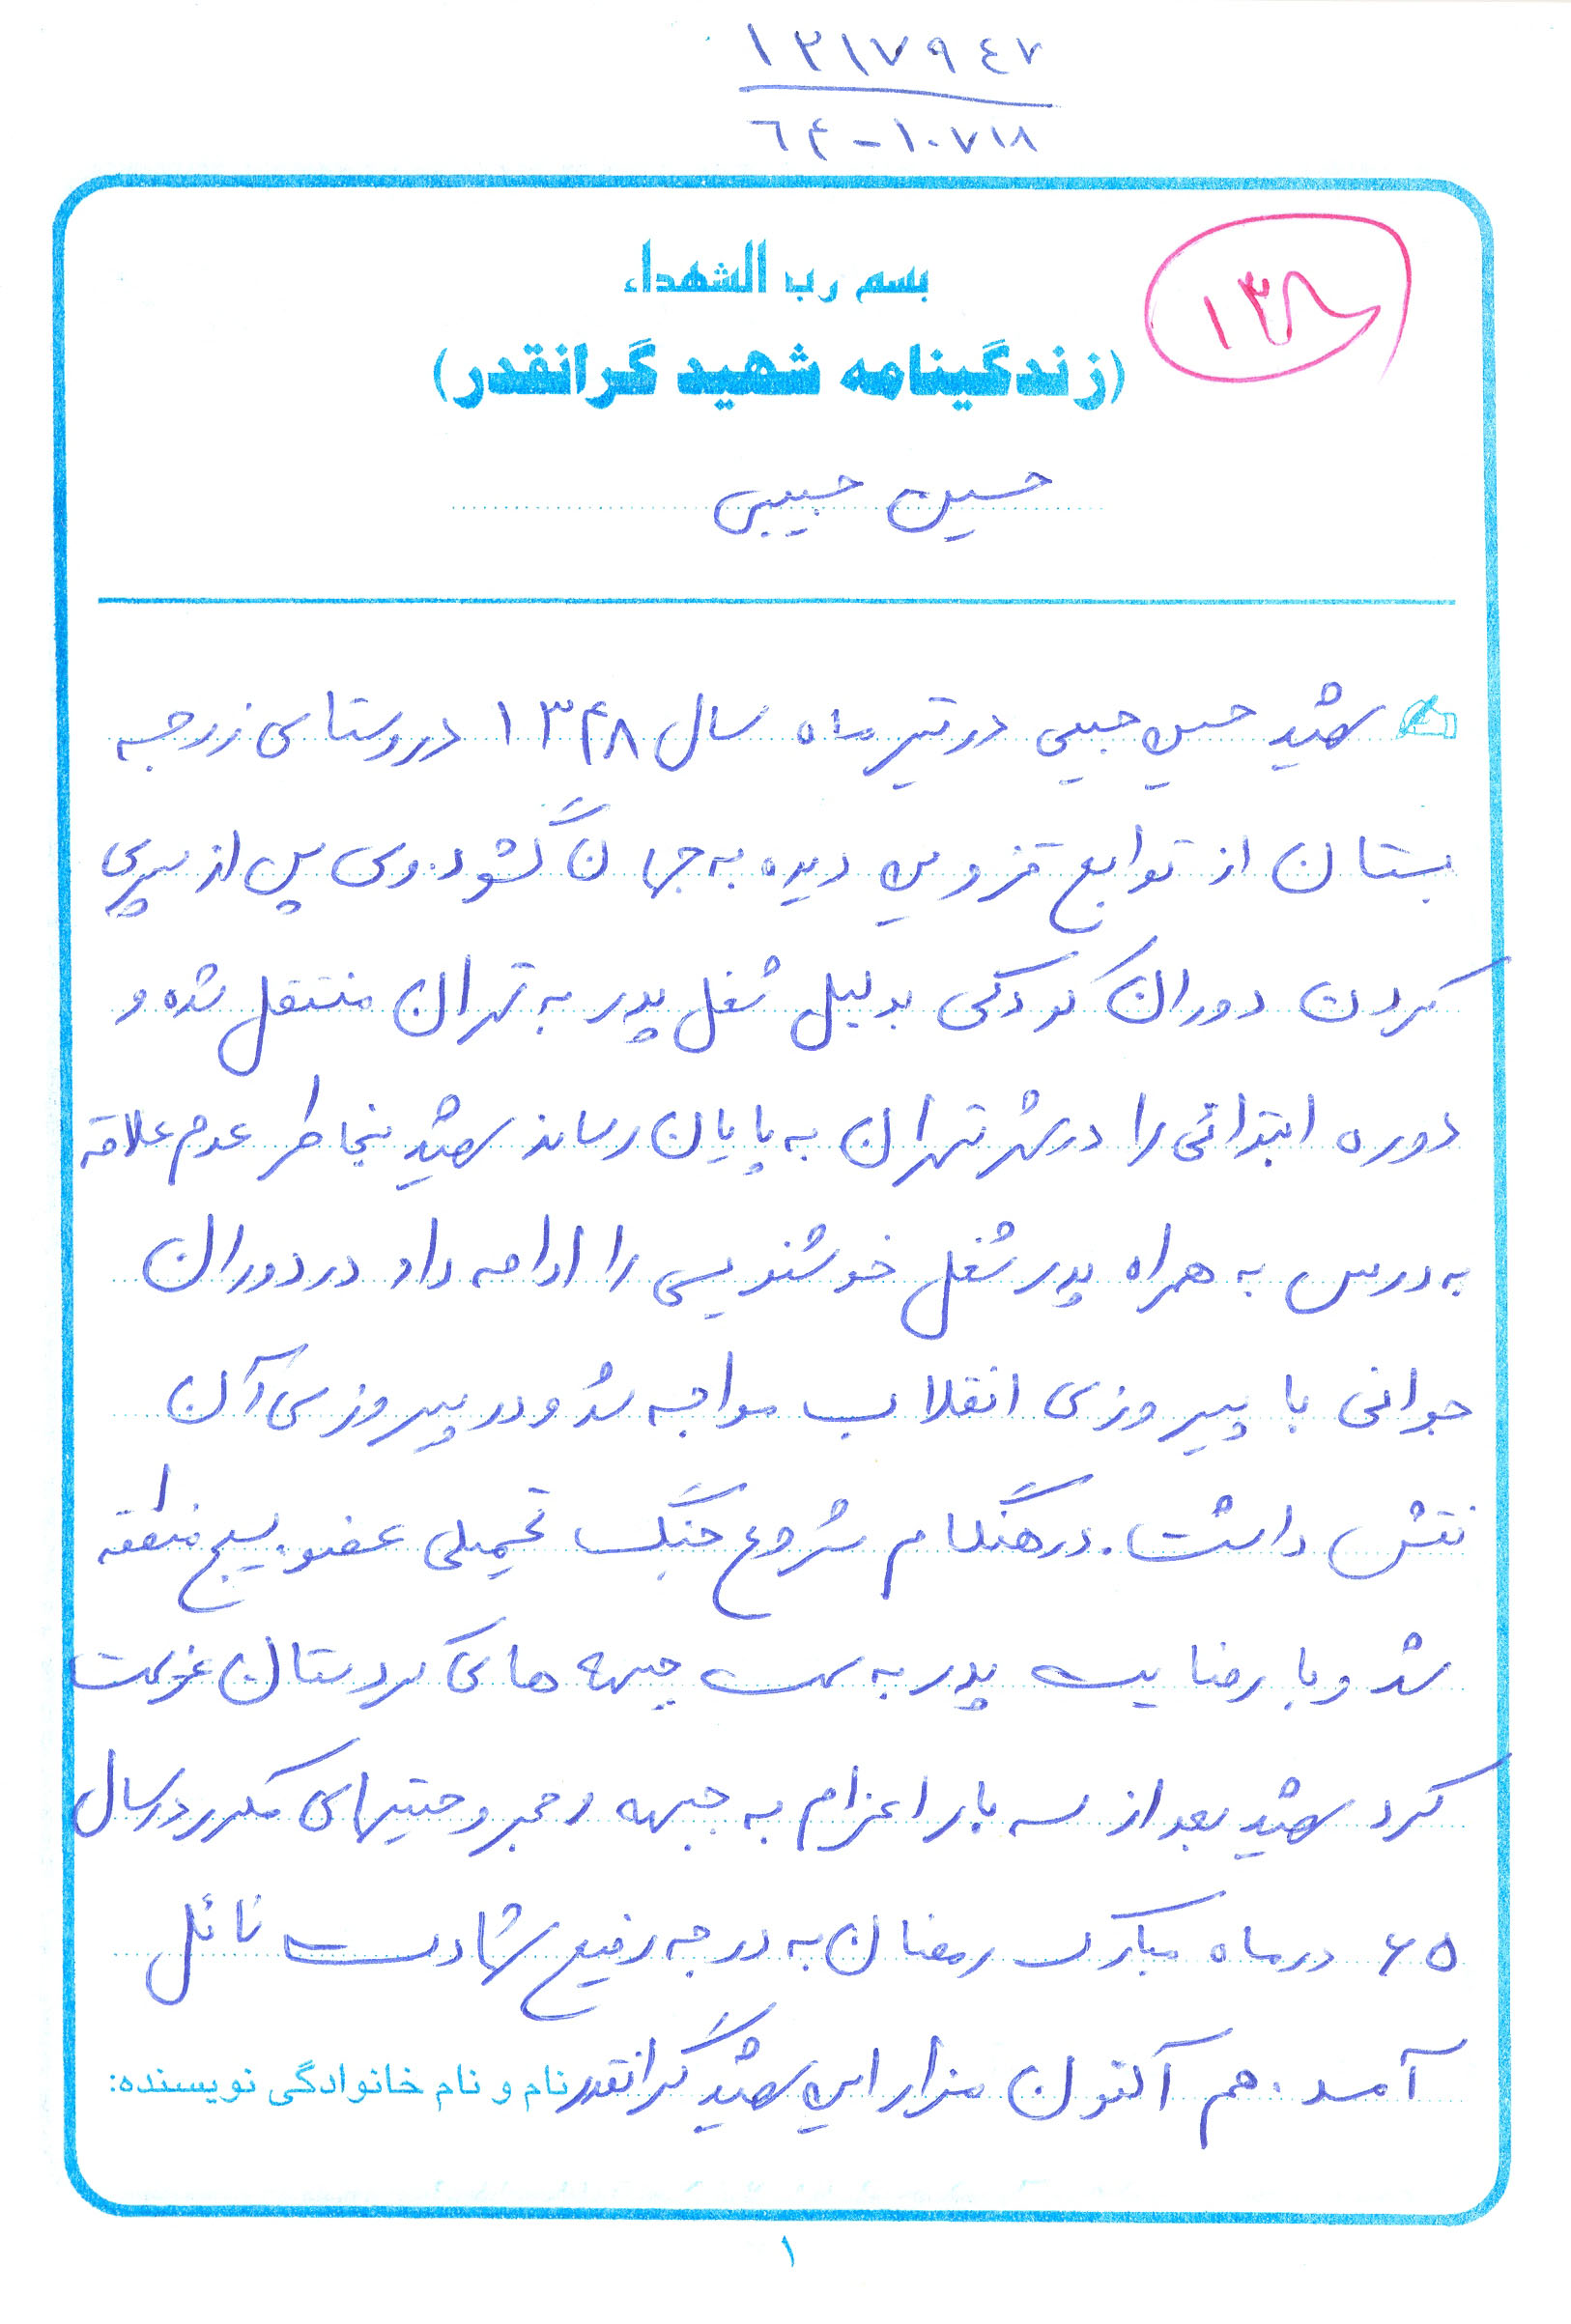 ۱۳۱۷۹٤۷
٦۴-۱۰۷۱۸
۱۳۸
بسم رب الشهداء
(زندگینامه شهید گرانقدر)
حسین حبیبی
شهید حسین حبیبی در تیر ماه سال ۱۳۴۸ در روستای زرجه
بستان از توابع قزوین دیده به جهان گشود. وی پس از سپری
کردن دوران کودکی بدلیل شغل پدر به تهران منتقل شده و
دوره ابتدائی را در شهر تهران به پایان رساند شهید بخاطر عدم علاقه
به درس به همراه پدر شغل خوشنویسی را ادامه داد در دوران
جوانی با پیروزی انقلاب مواجه شد و در پیروزی آن
نقش داشت. در هنگام شروع جنگ تحمیلی عضو بسیج منطقه
شد و با رضایت پدر به سمت جبهه های کردستان عزیمت
کرد شهید بعد از سه بار اعزام به جبهه و مجروحیتهای مکرر در سال
۶۵ در ماه مبارک رمضان به درجه رفیع شهادت نائل
آمد. هم اکنون مزار این شهید گرانقدر
نام و نام خانوادگی نویسنده:
۱